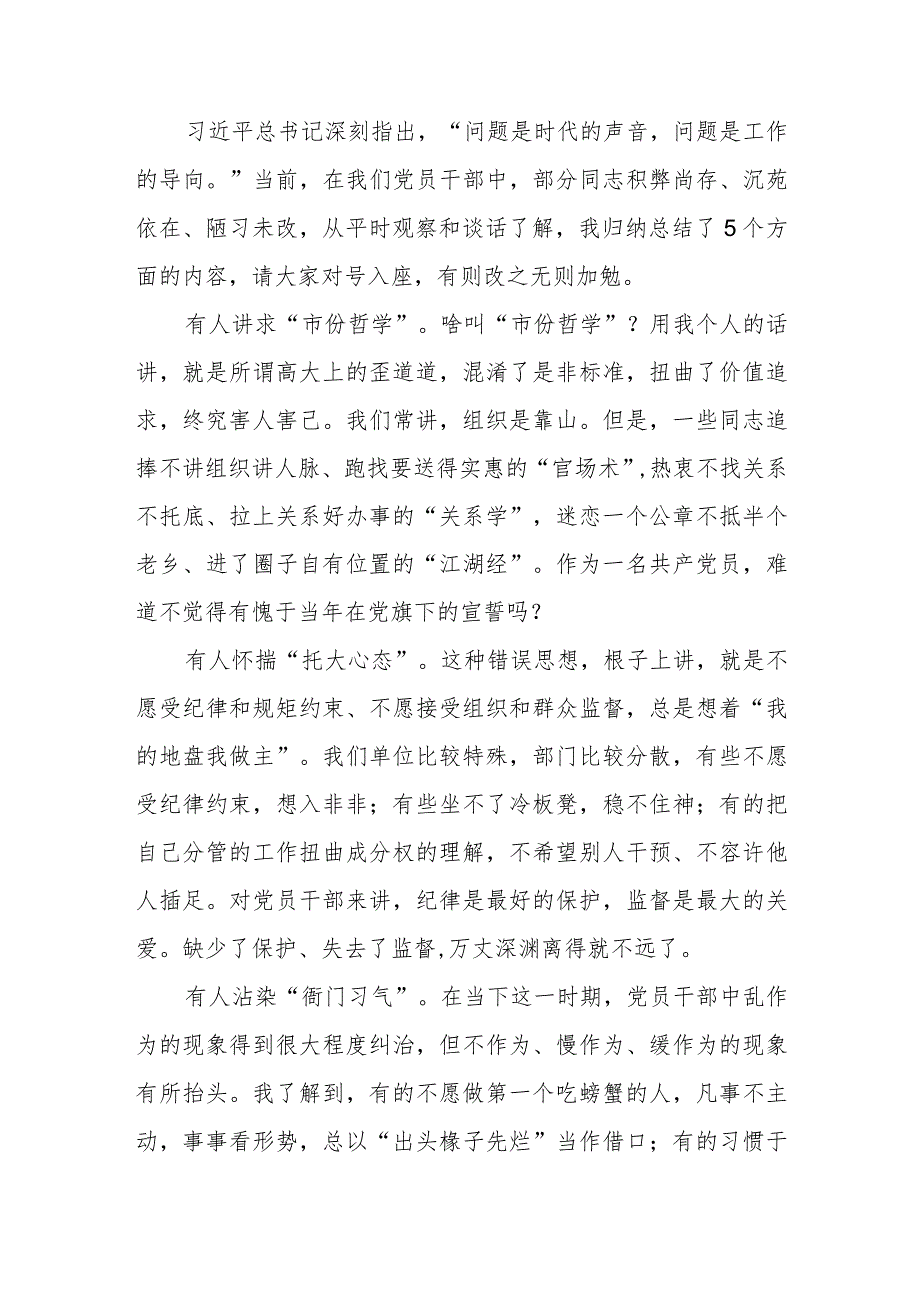 习近平总书记深刻指出，“问题是时代的声音，问题是工作
的导向。”当前，在我们党员干部中，部分同志积弊尚存、沉苑
依在、陋习未改，从平时观察和谈话了解，我归纳总结了 5 个方
面的内容，请大家对号入座，有则改之无则加勉。
有人讲求“市份哲学”。啥叫“市份哲学”？用我个人的话
讲，就是所谓高大上的歪道道，混淆了是非标准，扭曲了价值追
求，终究害人害己。我们常讲，组织是靠山。但是，一些同志追
捧不讲组织讲人脉、跑找要送得实惠的“官场术”,热衷不找关系
不托底、拉上关系好办事的“关系学”，迷恋一个公章不抵半个
老乡、进了圈子自有位置的“江湖经”。作为一名共产党员，难
道不觉得有愧于当年在党旗下的宣誓吗？
有人怀揣“托大心态”。这种错误思想，根子上讲，就是不
愿受纪律和规短约束、不愿接受组织和群众监督，总是想着“我
的地盘我做主”。我们单位比较特殊，部门比较分散，有些不愿
受纪律约束，想入非非；有些坐不了冷板凳，稳不住神；有的把
自己分管的工作扭曲成分权的理解，不希望别人干预、不容许他
人插足。对党员干部来讲，纪律是最好的保护，监督是最大的关
爱。缺少了保护、失去了监督,万丈深渊离得就不远了。
有人沾染“衙门习气”。在当下这一时期，党员干部中乱作
为的现象得到很大程度纠治，但不作为、慢作为、缓作为的现象
有所抬头。我了解到，有的不愿做第一个吃螃蟹的人，凡事不主
动，事事看形势，总以“出头椽子先烂”当作借口；有的习惯于